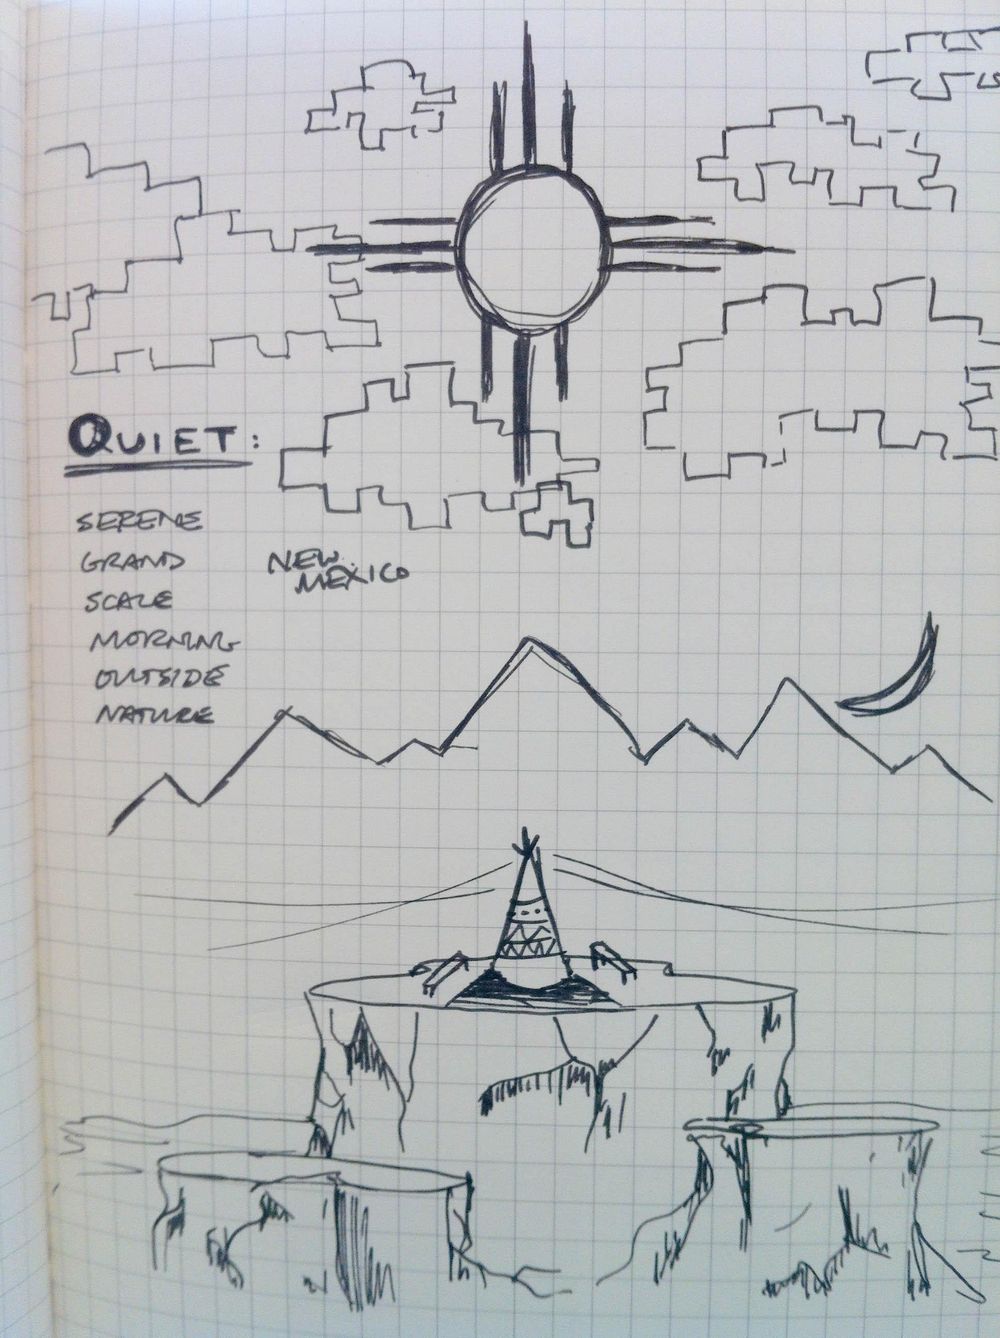 QUIET:
SERENE
GRAND
SCALE
MORNING
OUTSIDE
NATURE
NEW
MEXICO